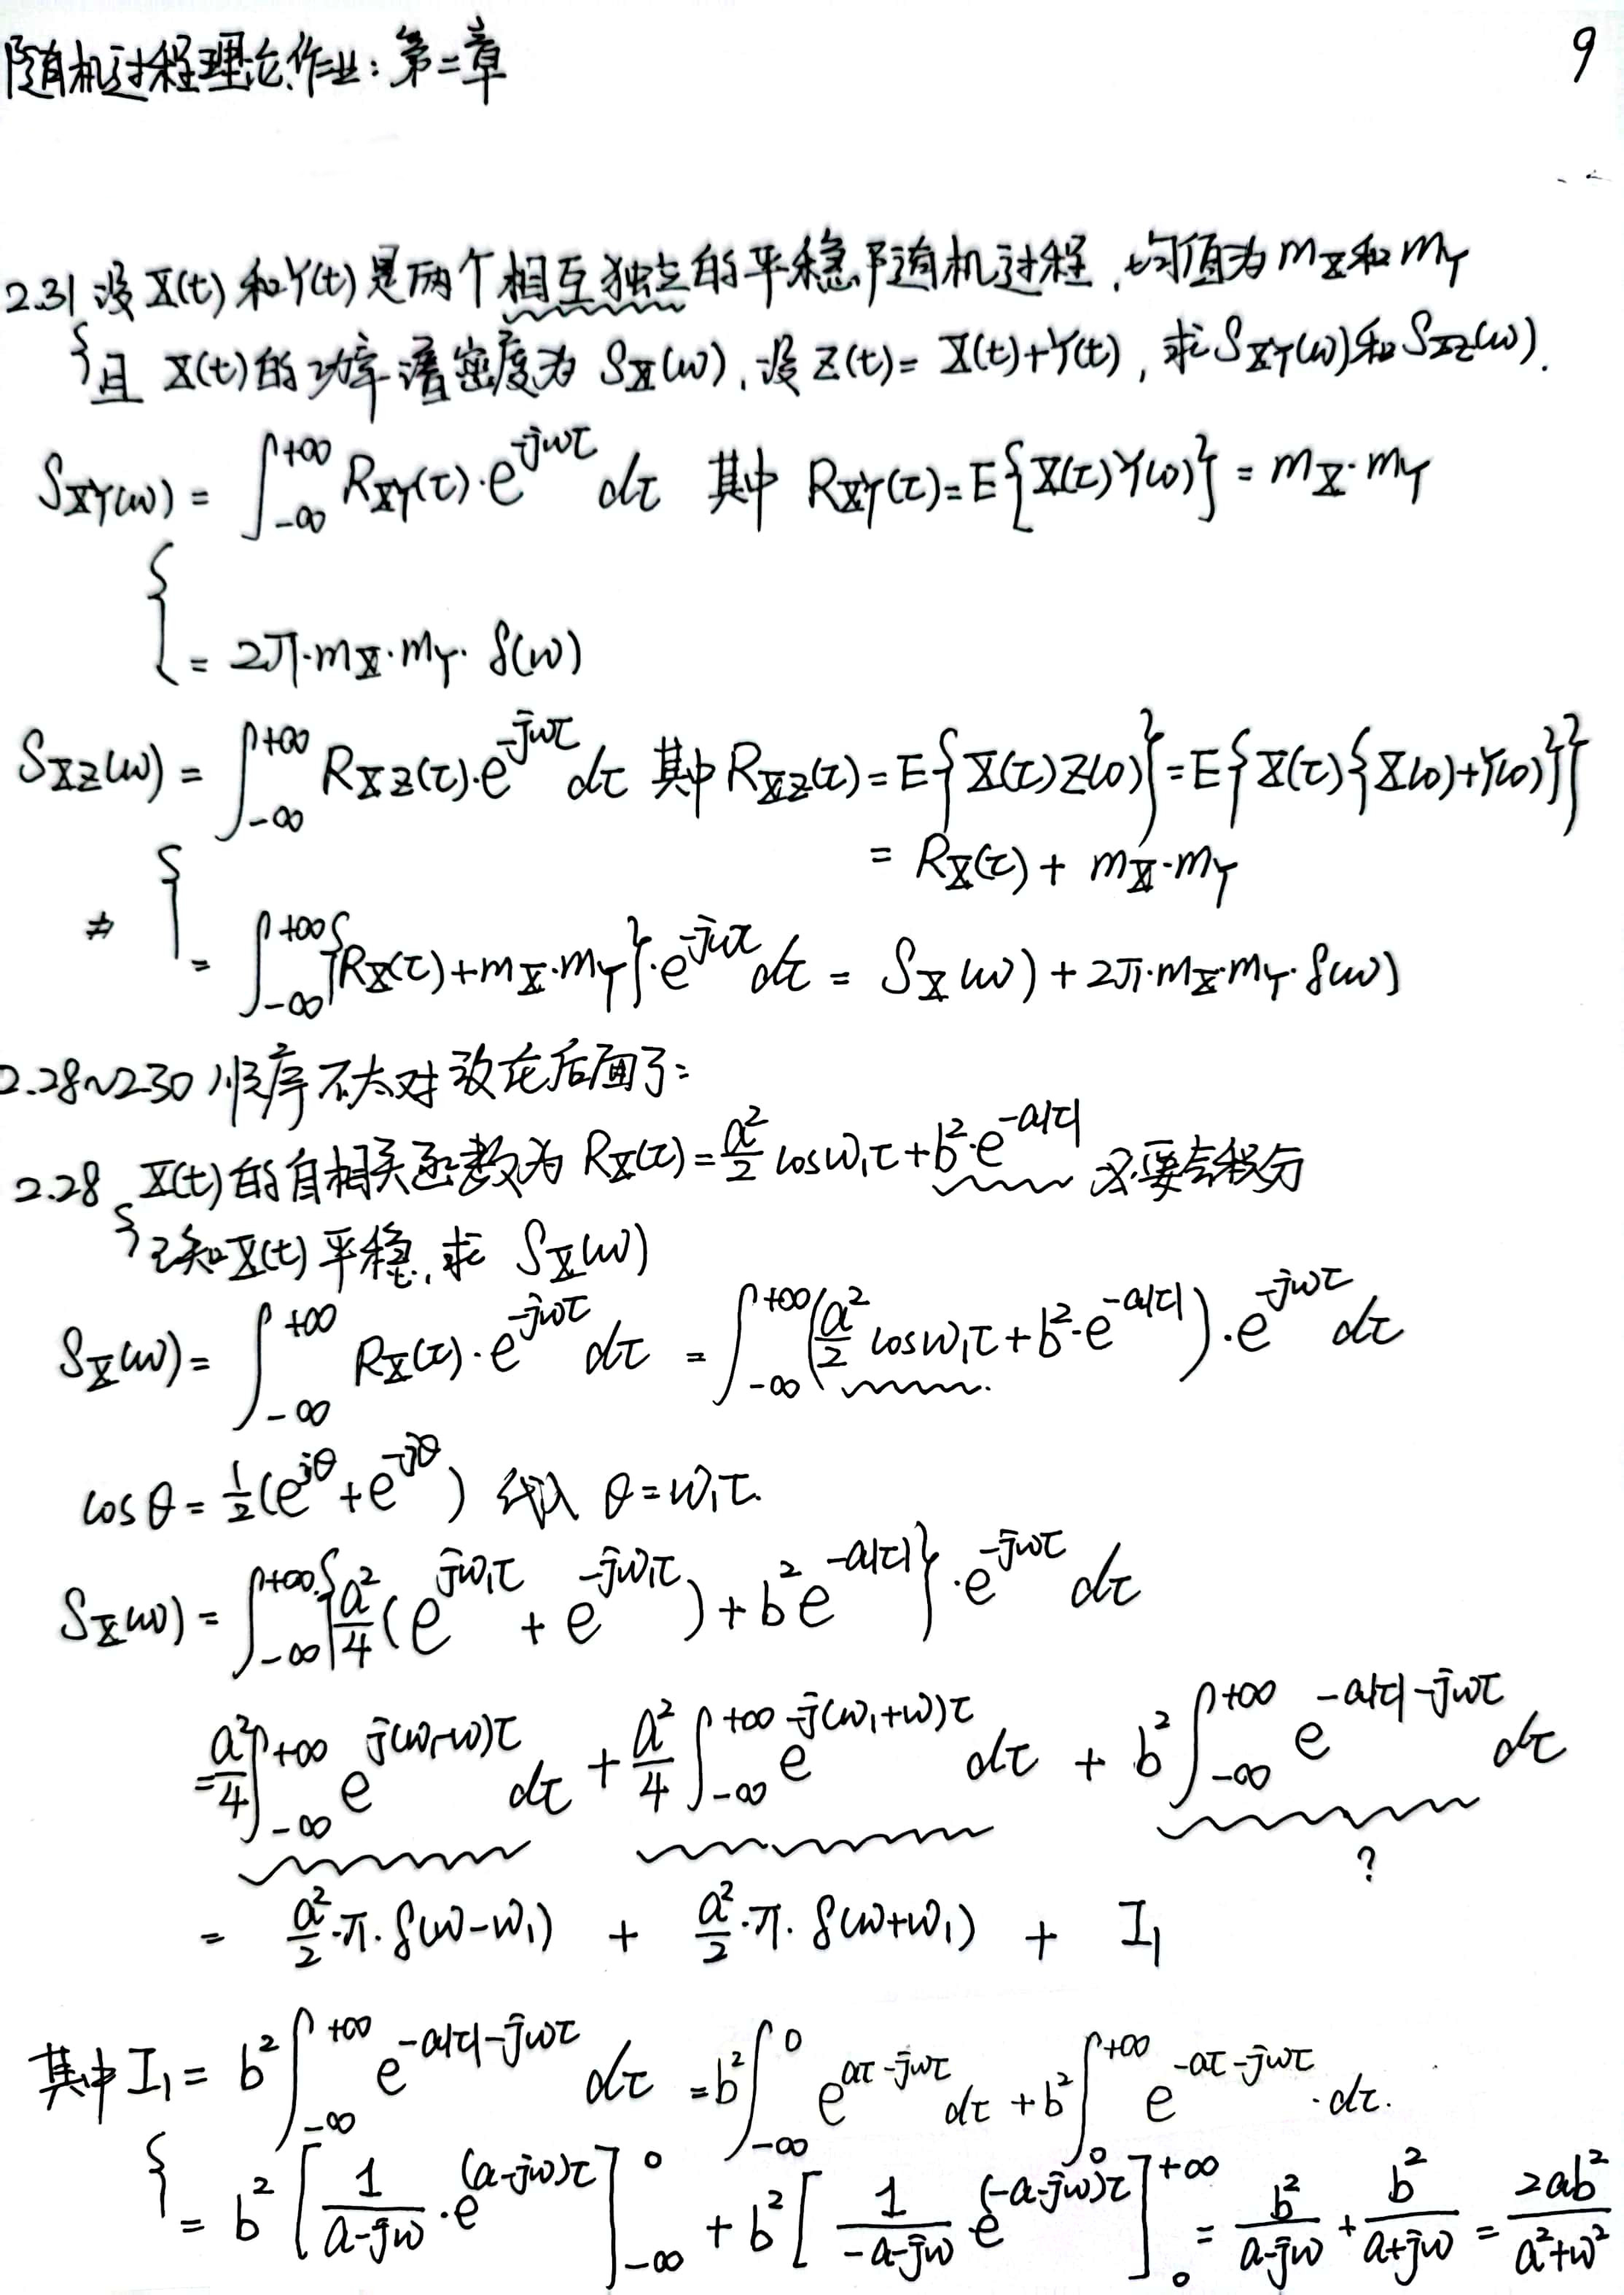 随机过程理论作业：第二章
9
2.31 设 X(t) 和 Y(t) 是两个相互独立的平稳随机过程，均值为 m_X 和 m_Y
且 X(t) 的功率谱密度为 S_X(ω)，设 Z(t) = X(t)+Y(t)，求 S_XY(ω) 和 S_XZ(ω).
S_XY(ω) = ∫_{-∞}^{+∞} R_XY(τ)·e^{-jωτ} dτ 其中 R_XY(τ) = E{X(τ)Y(0)} = m_X·m_Y
= 2π·m_X·m_Y·δ(ω)
S_XZ(ω) = ∫_{-∞}^{+∞} R_XZ(τ)·e^{-jωτ} dτ 其中 R_XZ(τ) = E{X(τ)Z(0)} = E{X(τ){X(0)+Y(0)}}
= R_X(τ) + m_X·m_Y
= ∫_{-∞}^{+∞} {R_X(τ)+m_X·m_Y}·e^{-jωτ} dτ = S_X(ω) + 2π·m_X·m_Y·δ(ω)
2.28~2.30 顺序不太对 放在后面了：
2.28 X(t) 的自相关函数为 R_X(τ) = a²/2 cosω₁τ + b²·e^{-a|τ|} 积分
已知 X(t) 平稳，求 S_X(ω)
S_X(ω) = ∫_{-∞}^{+∞} R_X(τ)·e^{-jωτ} dτ = ∫_{-∞}^{+∞} (a²/2 cosω₁τ + b²·e^{-a|τ|})·e^{-jωτ} dτ
cosθ = 1/2(e^{jθ} + e^{-jθ}) 代入 θ = ω₁τ.
S_X(ω) = ∫_{-∞}^{+∞} {a²/4 (e^{jω₁τ} + e^{-jω₁τ}) + b² e^{-a|τ|}}·e^{-jωτ} dτ
= a²/4 ∫_{-∞}^{+∞} e^{j(ω₁-ω)τ} dτ + a²/4 ∫_{-∞}^{+∞} e^{-j(ω₁+ω)τ} dτ + b² ∫_{-∞}^{+∞} e^{-a|τ|-jωτ} dτ
?
= a²/2·π·δ(ω-ω₁) + a²/2·π·δ(ω+ω₁) + I₁
其中 I₁ = b² ∫_{-∞}^{+∞} e^{-a|τ|-jωτ} dτ = b² ∫_{-∞}^{0} e^{aτ-jωτ} dτ + b² ∫_{0}^{+∞} e^{-aτ-jωτ}·dτ.
= b² [1/(a-jω)·e^{(a-jω)τ}]_{-∞}^{0} + b² [1/(-a-jω)·e^{(-a-jω)τ}]_{0}^{+∞} = b²/(a-jω) + b²/(a+jω) = 2ab²/(a²+ω²)